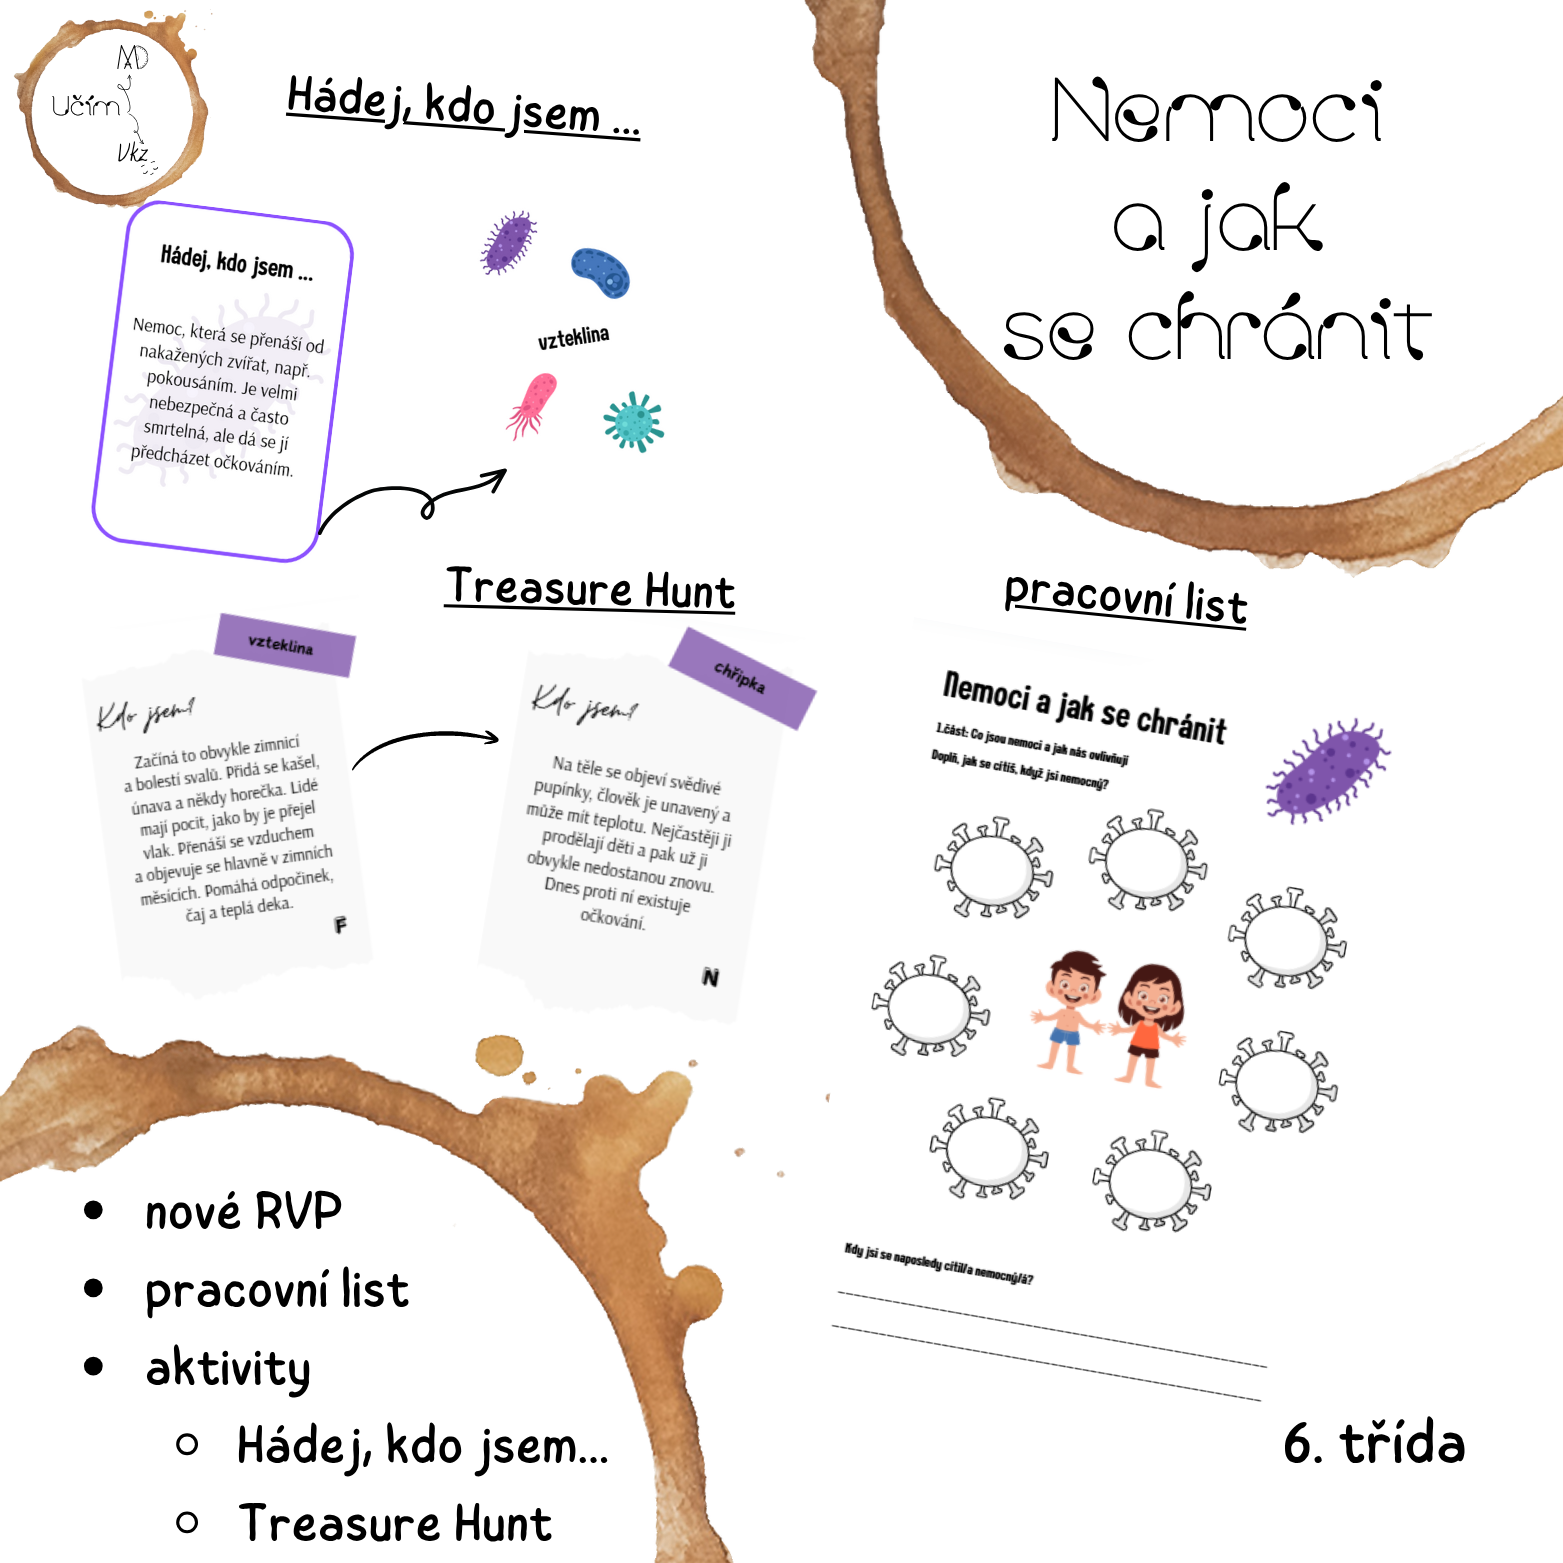 MAD
Učím
Vkz
Hádej, kdo jsem ...
Nemoci
a jak
se chránit
Hádej, kdo jsem ...
Nemoc, která se přenáší od
nakažených zvířat, např.
pokousáním. Je velmi
nebezpečná a často
smrtelná, ale dá se jí
předcházet očkováním.
vzteklina
Treasure Hunt
vzteklina
Kdo jsem?
Začíná to obvykle zimnicí
a bolestí svalů. Přidá se kašel,
únava a někdy horečka. Lidé
mají pocit, jako by je přejel
vlak. Přenáší se vzduchem
a objevuje se hlavně v zimních
měsících. Pomáhá odpočinek,
čaj a teplá deka.
F
chřipka
Kdo jsem?
Na těle se objeví svědivé
pupínky, člověk je unavený a
může mít teplotu. Nejčastěji ji
prodělají děti a pak už ji
obvykle nedostanou znovu.
Dnes proti ní existuje
očkování.
N
pracovní list
Nemoci a jak se chránit
1.část: Co jsou nemoci a jak nás ovlivňují
Doplň, jak se cítíš, když jsi nemocný?
Kdy jsi se naposledy cítil/a nemocný/á?
• nové RVP
• pracovní list
• aktivity
○ Hádej, kdo jsem...
○ Treasure Hunt
6. třída